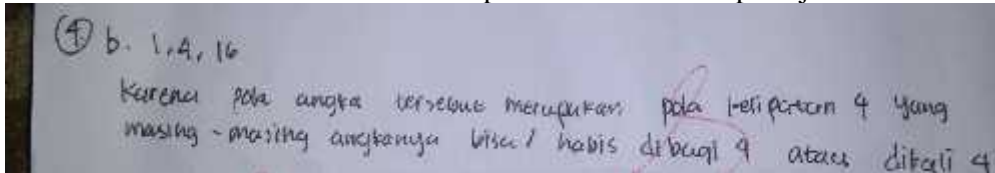 ④ b. 1, 4, 16
Karena pola angka tersebut merupakan pola kelipatan 4 yang
masing-masing angkanya bisa / habis dibagi 4 atau dikali 4